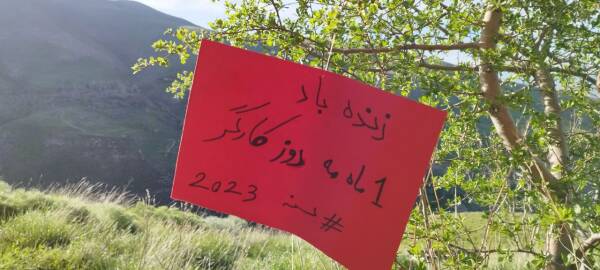 زنده باد
1 ماه مه روز کارگر
#سنه 2023